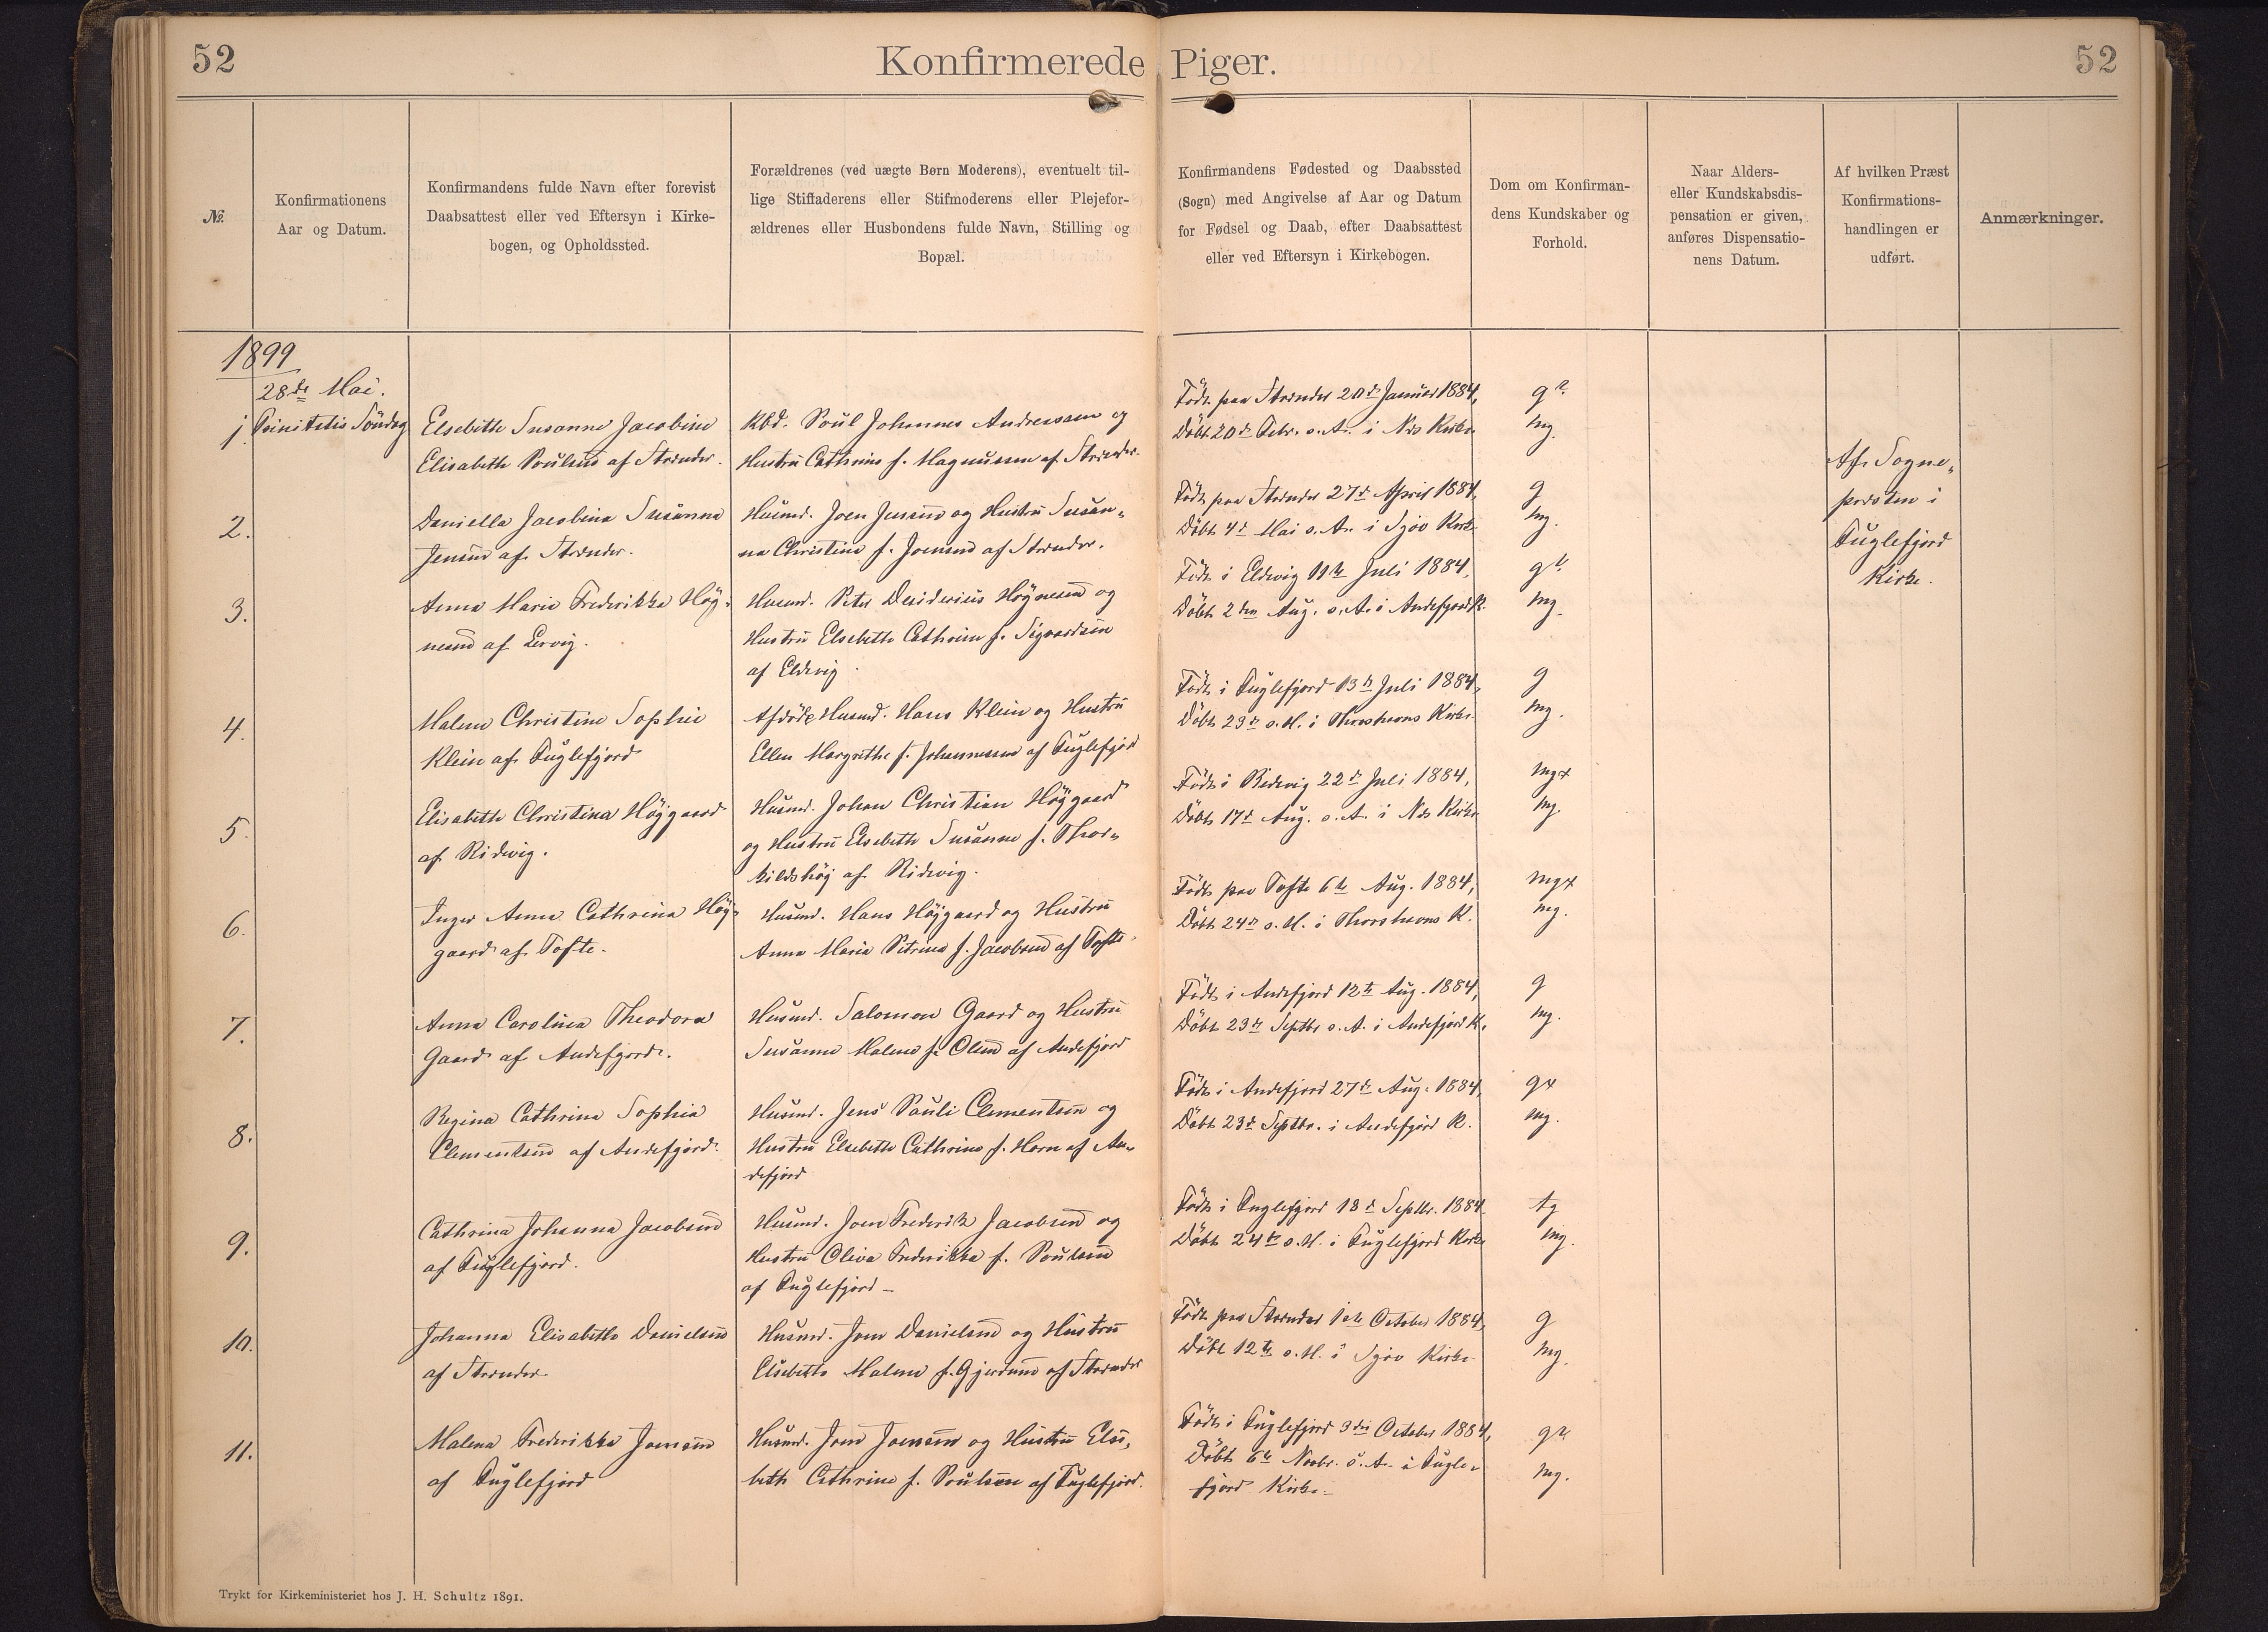 52
Konfirmerede Piger.
52
№.
Konfirmationens
Aar og Datum.
Konfirmandens fulde Navn efter forevist
Daabsattest eller ved Eftersyn i Kirke-
bogen, og Opholdssted.
Forældrenes (ved uægte Børn Moderens), eventuelt til-
lige Stiffaderens eller Stifmoderens eller Plejefor-
ældrenes eller Husbondens fulde Navn, Stilling og
Bopæl.
Konfirmandens Fødested og Daabssted
(Sogn) med Angivelse af Aar og Datum
for Fødsel og Daab, efter Daabsattest
eller ved Eftersyn i Kirkebogen.
Dom om Konfirman-
dens Kundskaber og
Forhold.
Naar Alders-
eller Kundskabsdis-
pensation er given,
anføres Dispensatio-
nens Datum.
Af hvilken Præst
Konfirmations-
handlingen er
udført.
Anmærkninger.
1899
28de Mai.
Trinitatis Söndag
1.
Elsebeth Susanne Jacobine
Elisabeth Poulsen af Strænder.
Kbd. Poul Johannes Andreassen og
Hustru Cathrine f. Magnussen af Strænder.
Födt paa Strænder 20de Januar 1884,
Döbt 20de Febr. s. A. i Næs Kirke
g?
mg.
Af Sogne-
præsten i
Fuglefjord
Kirke.
2.
Daniella Jacobina Susanna
Jensen af Strænder.
Husmd. Joen Jensen og Hustru Susan-
na Christine f. Joensen af Strænder.
Födt paa Strænder 27de April 1884,
Döbt 4de Mai s. A. i Sjov Kirke
g
mg.
3.
Anna Maria Frederikka Höj-
nesen af Lervig.
Husmd. Peter Desiderius Höjnesen og
Hustru Elsebeth Cathrine f. Sigvardsen
af Eldevig.
Födt i Eldevig 11te Juli 1884,
Döbt 2den Aug. s. A. i Andefjord K.
g?
mg.
4.
Malene Christine Sophie
Klein af Fuglefjord
Afdöde Husmd. Hans Klein og Hustru
Ellen Margrethe f. Johannesen af Fuglefjord
Födt i Fuglefjord 13de Juli 1884,
Döbt 23de s. M. i Thorshavns Kirke
g
mg.
5.
Elisabeth Christina Höjgaard
af Ridevig.
Husmd. Johan Christian Höjgaard
og Hustru Elsebeth Susanne f. Thor-
kildshöj af Ridevig.
Födt i Ridevig 22de Juli 1884,
Döbt 17de Aug. s. A. i Næs Kirke
mgx
mg.
6.
Inger Anna Cathrina Höj-
gaard af Tofte.
Husmd. Hans Höjgaard og Hustru
Anna Maria Petrina f. Jacobsen af Tofte.
Födt paa Tofte 6te Aug. 1884,
Döbt 24de s. M. i Thorshavns K.
mgx
mg.
7.
Anna Carolina Theodora
Gaard af Andefjord.
Husmd. Salomon Gaard og Hustru
Susanne Malene f. Olsen af Andefjord
Födt i Andefjord 12te Aug. 1884,
Döbt 23de Septbr s. A. i Andefjord K.
g
mg.
8.
Regina Cathrina Sophia
Clementsen af Andefjord.
Husmd. Jens Pauli Clementsen og
Hustru Elsebeth Cathrine f. Horn af An-
defjord
Födt i Andefjord 27de Aug. 1884,
Döbt 23de Septbr. i Andefjord K.
gx
mg.
9.
Cathrina Johanna Jacobsen
af Fuglefjord.
Husmd. Joen Frederik Jacobsen og
Hustru Oliva Frederikka f. Poulsen
af Fuglefjord
Födt i Fuglefjord 18de Septbr. 1884.
Döbt 24de s. M. i Fuglefjord Kirke
tg
mg.
10.
Johanna Elisabeth Danielsen
af Strænder.
Husmd. Joen Danielsen og Hustru
Elsebeth Malene f. Gjerdum af Strænder
Födt paa Strænder 1ste October 1884,
Döbt 12te s. M. i Sjov Kirke
g
mg.
11.
Malena Frederikka Joensen
af Fuglefjord
Husmd. Joen Joensen og Hustru Else-
beth Cathrine f. Poulsen af Fuglefjord.
Födt i Fuglefjord 3die October 1884,
Döbt 6te Novbr. s. A. i Fugle-
fjord Kirke.
g?
mg.
Trykt for Kirkeministeriet hos J. H. Schultz 1891.